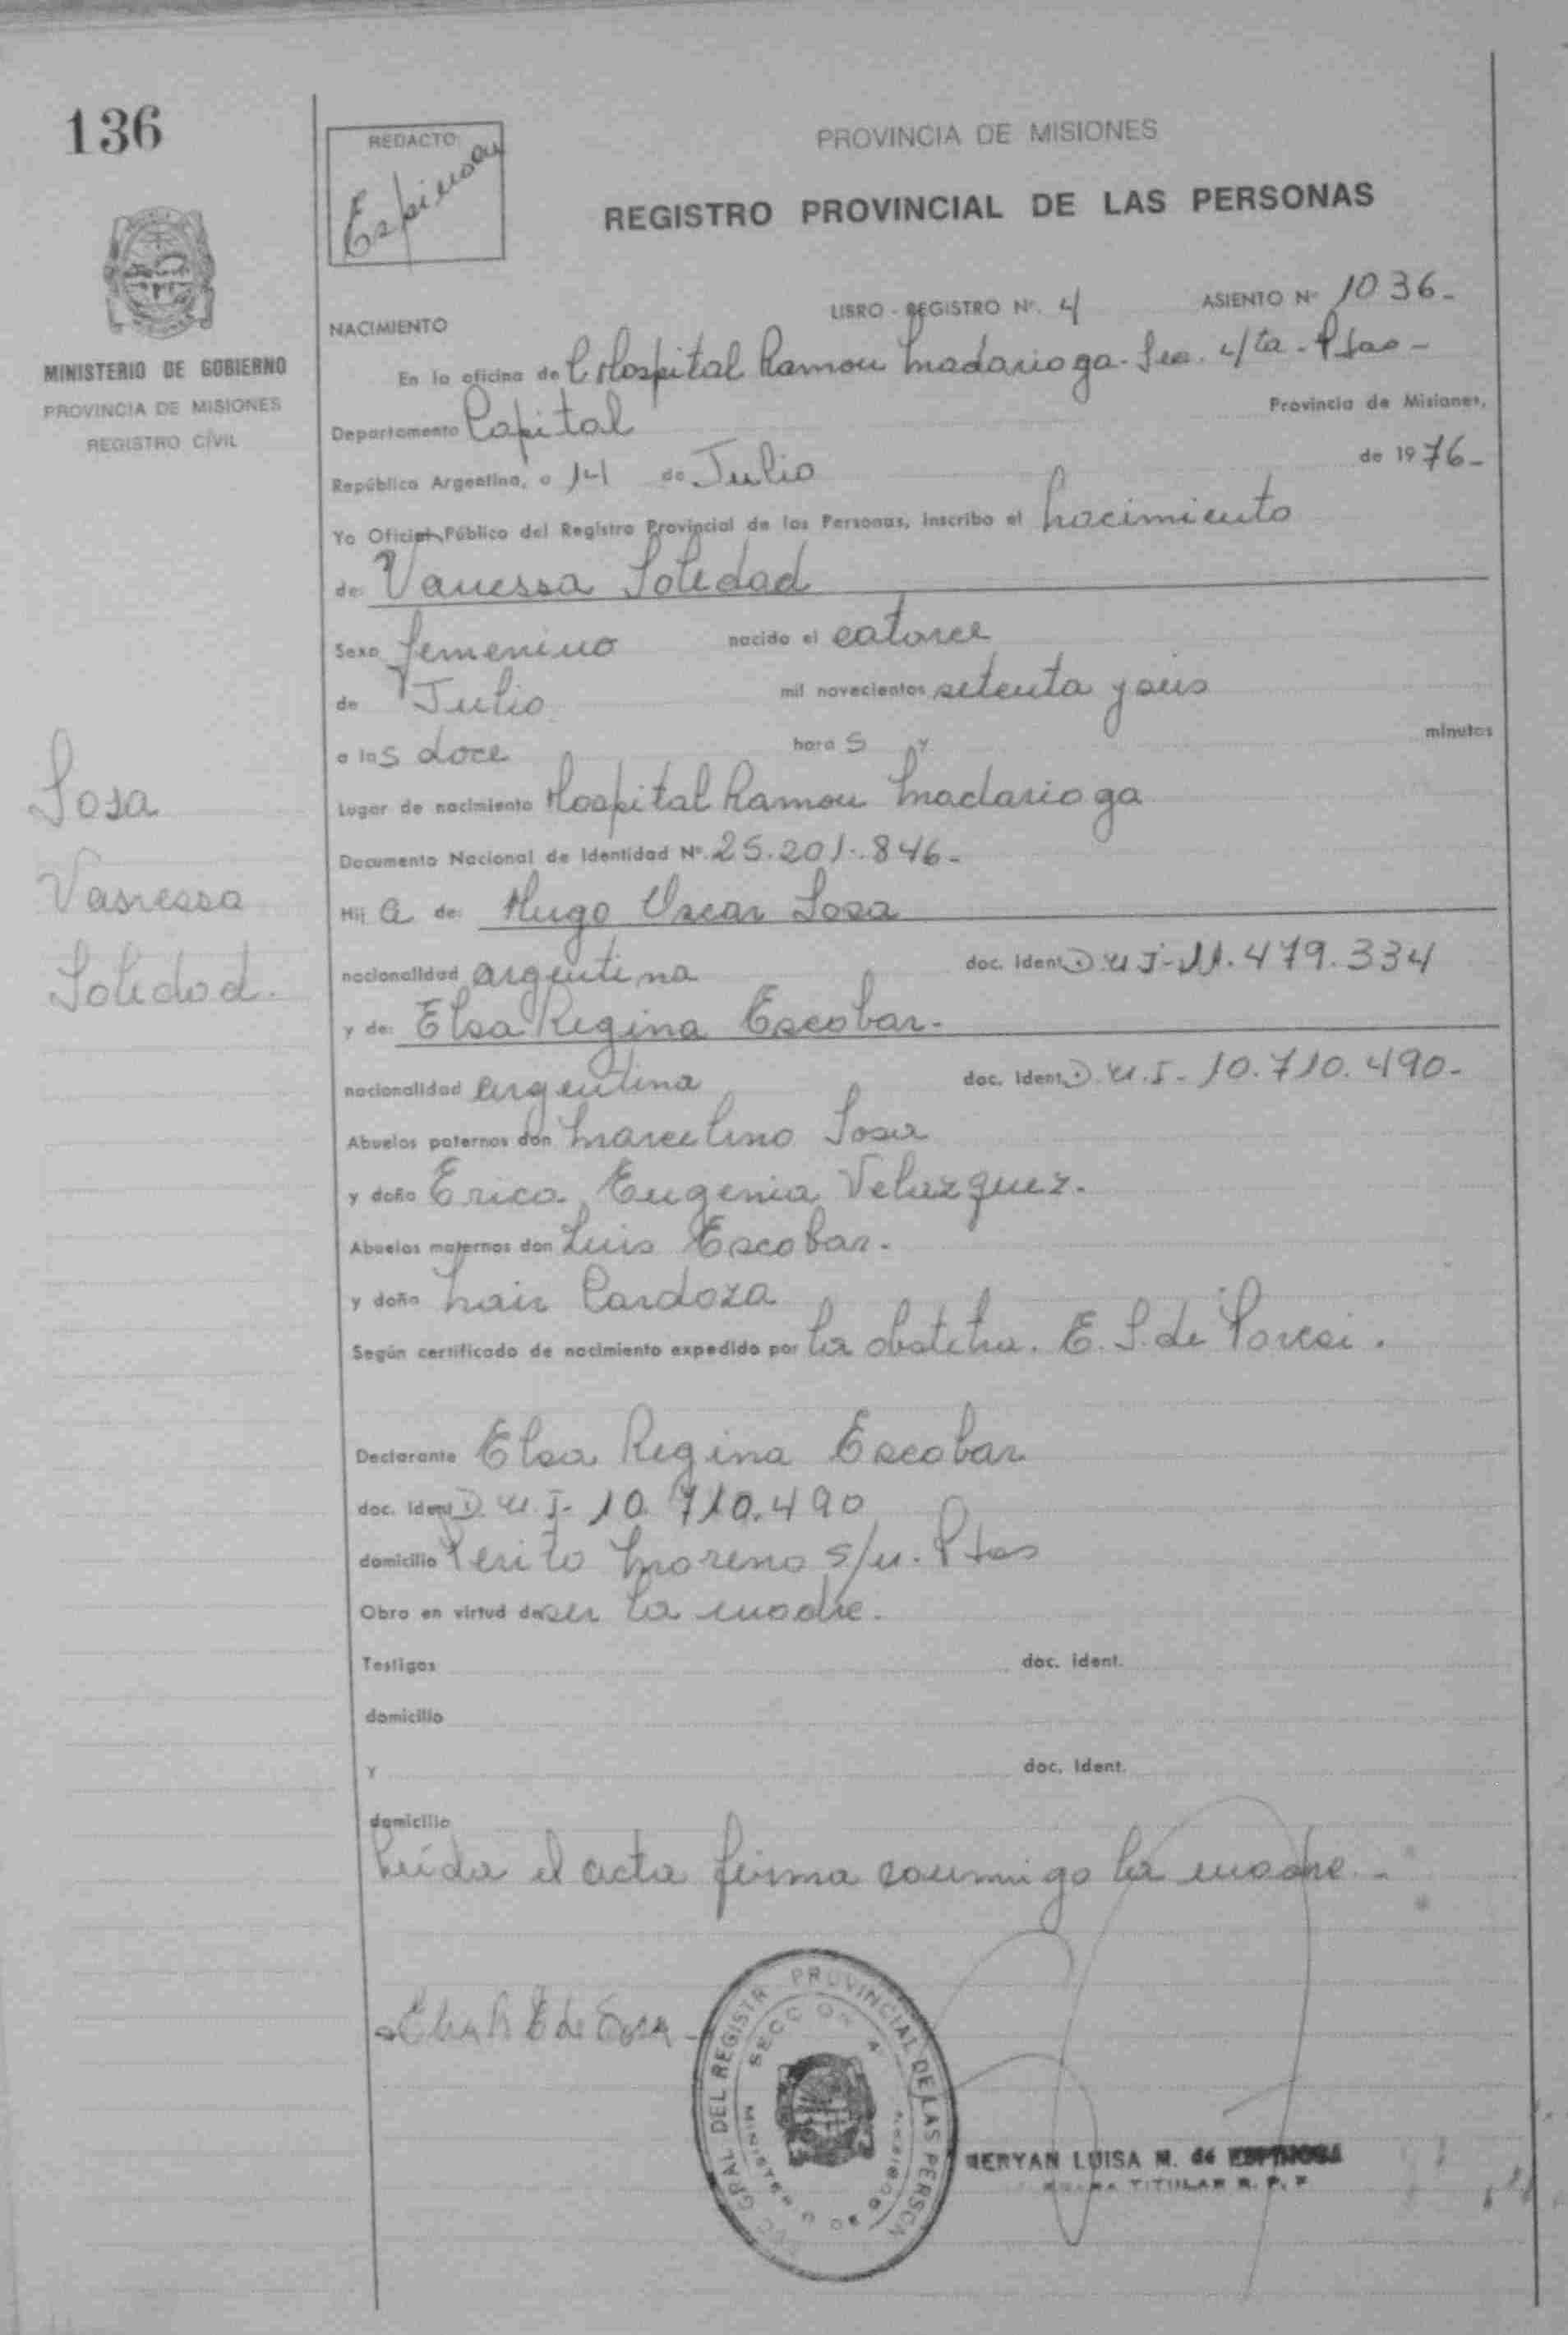 136
REDACTO:
Espinosa
PROVINCIA DE MISIONES
REGISTRO PROVINCIAL DE LAS PERSONAS
MINISTERIO DE GOBIERNO
PROVINCIA DE MISIONES
REGISTRO CÍVIL
LIBRO - REGISTRO Nº. 4 ASIENTO Nº 1036-
NACIMIENTO
En la oficina de Hospital Ramon Madariaga - Sec. 4/ta - Pdas -
Departamento Capital Provincia de Misiones,
República Argentina, a 14 de Julio de 1976-
Yo Oficial Público del Registro Provincial de las Personas, inscribo el Nacimiento
de: Vanessa Soledad
Sexo femenino nacido el catorce
de Julio mil novecientos setenta y seis
a las doce horas y minutos
Lugar de nacimiento Hospital Ramon Madariaga
Documento Nacional de Identidad Nº. 25.201.846-
Hija de: Hugo Oscar Sosa
nacionalidad argentina doc. ident. D.N.I-11.479.334
y de: Elsa Regina Escobar-
nacionalidad argentina doc. ident. D.N.I- 10.710.490-
Abuelos paternos don Marcelino Sosa
y doña Erica Eugenia Velazquez-
Abuelos maternos don Luis Escobar-
y doña Cardoza
Según certificado de nacimiento expedido por la obstetra. E. S. de
Declarante Elsa Regina Escobar
doc. ident D.N.I- 10.710.490
domicilio Perito Moreno s/n. Pdas
Obra en virtud de ser la madre.
Testigos doc. ident.
domicilio
Y doc. ident.
domicilio
Leída el acta firma conmigo la madre -
Sosa
Vanessa
Soledad.
Elsa R E de Sosa -
GRAL DEL REGISTR PROVINCIAL DE LAS PERSON
SECCION 4
LUISA M. de ESPINOSA
TITULAR R. P. P